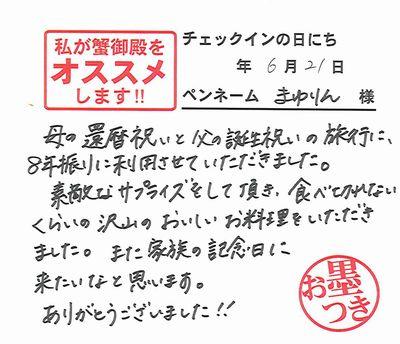 私が蟹御殿を
オススメ
します!!
チェックインの日にち
年 6月21日
ペンネーム まゆりん 様
母の還暦祝いと父の誕生祝いの旅行に、
8年振りに利用させていただきました。
素敵なサプライズをして頂き、食べきれない
くらいの沢山のおいしいお料理をいただき
ました。また家族の記念日に
来たいなと思います。
ありがとうございました!!
お墨つき